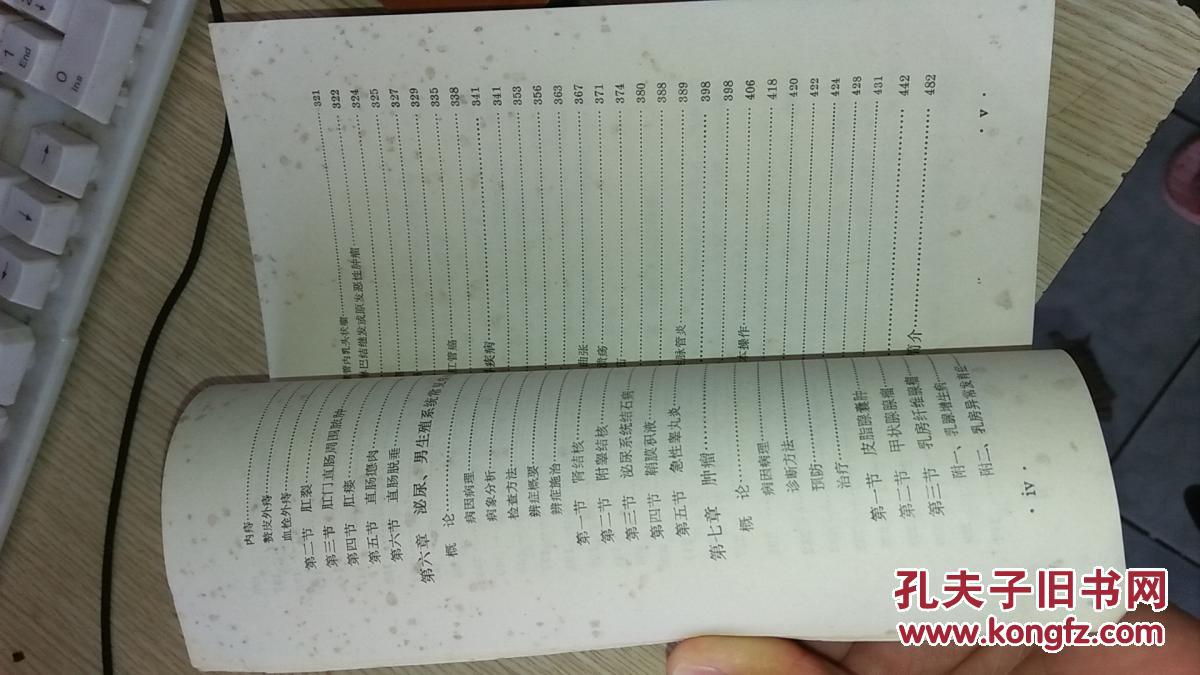 内痔
赘皮外痔
血栓外痔
第二节 肛裂
第三节 肛门直肠周围脓肿
第四节 肛瘘
第五节 直肠瘜肉
第六节 直肠脱垂
第六章 泌尿、男生殖系统常见
概 论
病因病理
病象分析
检查方法
辨症概要
辨症施治
第一节 肾结核
第二节 附睾结核
第三节 泌尿系统结石病
第四节 鞘膜积液
第五节 急性睾丸炎
第七章 肿瘤
概 论
病因病理
诊断方法
预防
治疗
第一节 皮脂腺囊肿
第二节 甲状腺腺瘤
第三节 乳房纤维腺瘤
附一、乳腺增生病
附二、乳房异常发育症
· iv ·
管内乳头状瘤 321
巴结继发或原发恶性肿瘤 322
324
325
327
329
335
肛管癌 338
疾病 341
341
353
356
363
367
曲张 371
溃疡 374
380
388
脉管炎 389
398
398
本操作 406
418
420
422
424
428
431
442
简介 482
· v ·
End
1
0
Ins
孔夫子旧书网
www.kongfz.com